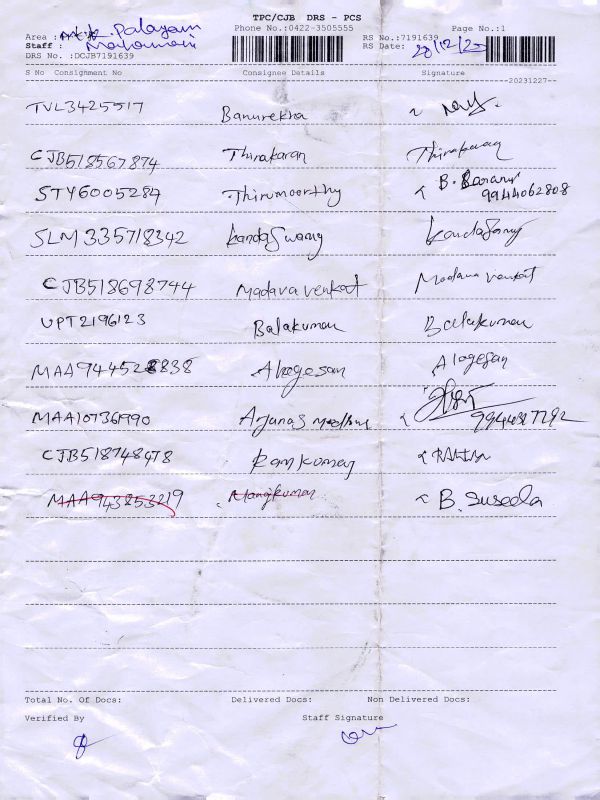 TPC/CJB DRS - PCS
Area : Palayam Phone No.:0422-3505555 RS No.:7191639 Page No.:1
Staff : RS Date: 28/12/23
DRS No. :DCJB7191639
S No Consignment No Consignee Details Signature
20231227--
TVL3425517 Banurekha
CJB518567874 Thirakaran
STY6005284 Thirumoorthy B. 9944062808
SLM335718342 KandaSwamy KandaSamy
CJB518698744 Madava venkat Madava venkat
UPT2196123 Balakumar Balakumar
MAA944528838 Alagesan Alagesan
MAA107361990
CJB518748978 Ramkumar
MAA943853219 B. Suseela
Total No. Of Docs: Delivered Docs: Non Delivered Docs:
Verified By Staff Signature